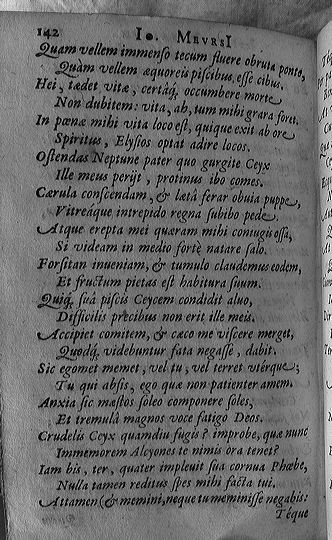 142 Io. MEVRSI
Quam vellem immenso tecum fluere obruta ponto,
Quàm vellem æquoreis piscibus esse cibus.
Hei, tædet vitæ, certáq; occumbere morte
Non dubitem: vita, ah, tum mihi grara foret.
In pœnæ mihi vita loco est, quique exit ab ore
Spiritus, Elysios optat adire locos.
Ostendas Neptune pater quo gurgite Ceyx
Ille meus perijt, protinus ibo comes.
Cærula conscendam, & lætâ ferar obuia puppe,
Vitreáque intrepido regna subibo pede.
Atque erepta mei quæram mihi coniugis ossa,
Si videam in medio fortè natare salo.
Forsitan inueniam, & tumulo claudemus eodem,
Et fructum pietas est habitura suum.
Quiq; suâ piscis Ceycem condidit aluo,
Difficilis precibus non erit ille meis.
Accipiet comitem, & cæco me viscere merget,
Quodq; videbuntur fata negasse, dabit.
Sic egomet memet, vel tu, vel terret vtérque;
Tu qui absis, ego quæ non patienter amem.
Anxia sic mæstos soleo componere soles,
Et tremulâ magnos voce fatigo Deos.
Crudelis Ceyx quamdiu fugis? improbe, quæ nunc
Immemorem Alcyones te nimis ora tenet?
Iam bis, ter, quater impleuit sua cornua Phœbe,
Nulla tamen reditus spes mihi facta tui.
Attamen (& memini, neque tu meminisse negabis:
Téque